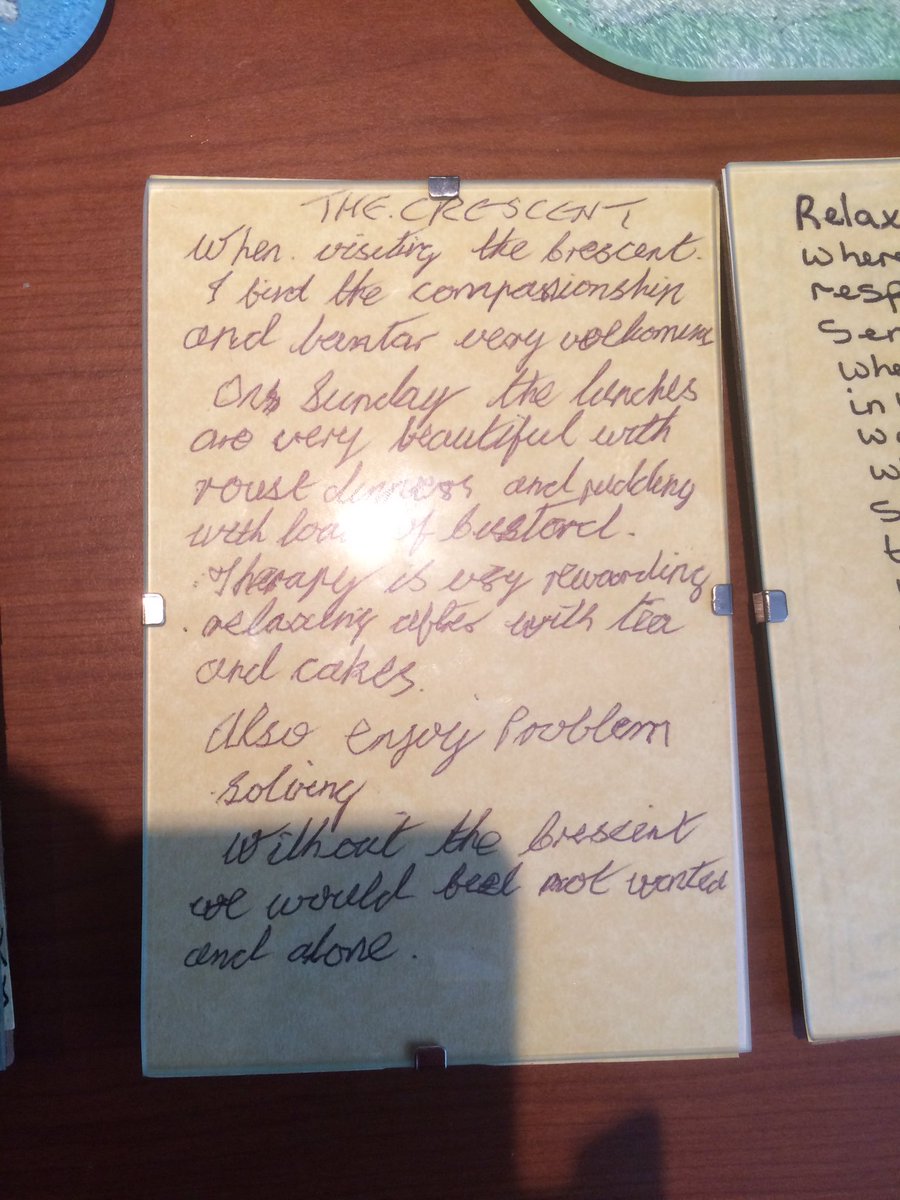 THE CRESCENT
When visiting the Crescent.
I find the compassionship
and bantar very welkomine
On Sunday the lunches
are very beautiful with
roust dinners and pudding
with of custord.
Therapy is very rewarding
relaxing after with tea
and cakes.
Also enjoy Problem
solving
Without the Crescent
we would feel not wanted
and alone.
Relax
where
resp
Ser
whe
in
w
w
S
t